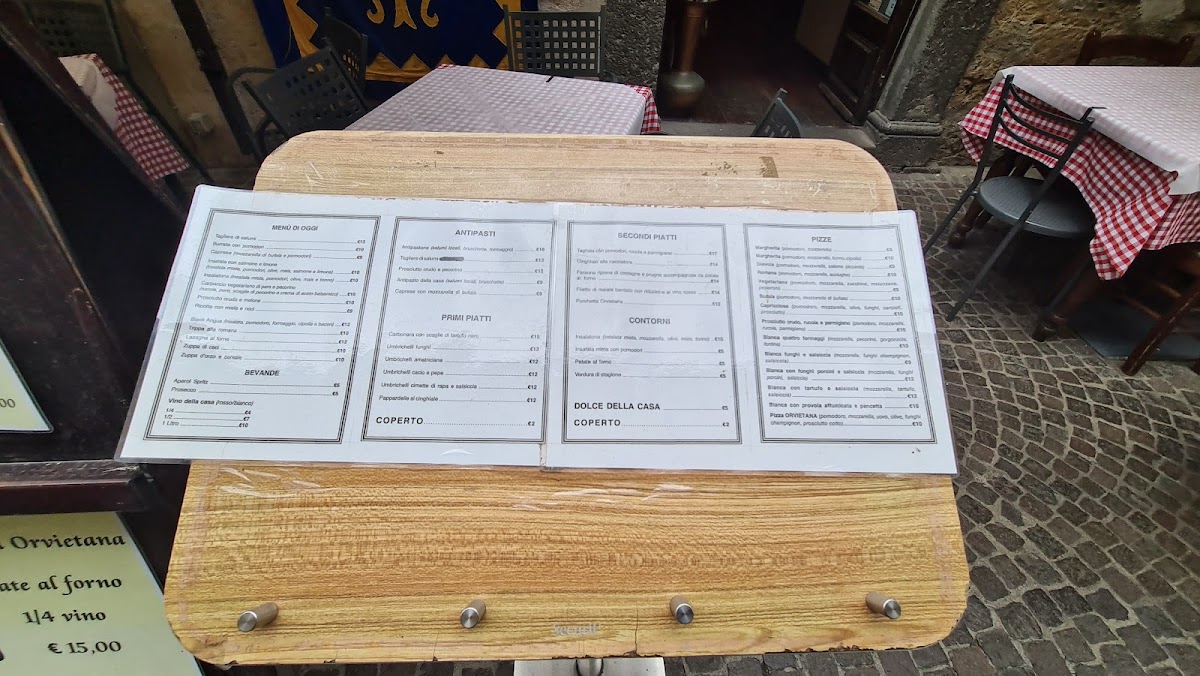 MENÙ DI OGGI
Tagliere di salumi €10
Burrata con pomodori €10
Caprese (mozzarella di bufala e pomodoro) €9
Insalata con salmone e limone
(insalata mista, pomodori, olive, mais, salmone e limone) €10
Insalatona (insalata mista, pomodori, olive, mais e tonno) €10
Carpaccio vegetariano di pere e pecorino
(rucola, pere, scaglie di pecorino e crema di aceto balsamico) €10
Prosciutto crudo e melone €10
Ricotta con miele e noci €9
Black Angus (insalata, pomodoro, formaggio, cipolla e bacon) €12
Trippa alla romana €10
Lasagna al forno €12
Zuppa di ceci €10
Zuppa d'orzo e cereale €10
BEVANDE
Aperol Spritz €5
Prosecco €5
Vino della casa (rosso/bianco)
1/4 €4
1/2 €7
1 Litro €10
ANTIPASTI
Antipastone (salumi locali, bruschette, formaggio) €16
Tagliere di salumi €10
Prosciutto crudo e pecorino €13
Antipasto della casa (salumi locali, bruschette) €9
Caprese con mozzarella di bufala €9
PRIMI PIATTI
Carbonara con scaglie di tartufo nero €15
Umbrichelli funghi €13
Umbrichelli amatriciana €12
Umbrichelli cacio e pepe €12
Umbrichelli cimette di rapa e salsiccia €12
Pappardelle al cinghiale €12
COPERTO €2
SECONDI PIATTI
Tagliata con pomodori, rucola e parmigiano €17
Cinghiale alla cacciatora €14
Faraona ripiena di castagne e prugne accompagnata da patate
al forno €14
Filetto di maiale bardato con riduzione al vino rosso €14
Porchetta Orvietana €12
CONTORNI
Insalatona (insalata mista, mozzarella, olive, mais, tonno) €10
Insalata mista con pomodori €5
Patate al forno €5
Verdura di stagione €5
DOLCE DELLA CASA €5
COPERTO €2
PIZZE
Margherita (pomodoro, mozzarella) €8
Margherita (pomodoro, mozzarella, tonno, cipolla) €10
Diavola (pomodoro, mozzarella, salame piccante) €9
Romana (pomodoro, mozzarella, acciughe) €10
Vegetariana (pomodoro, mozzarella, zucchine, melanzane,
peperoni) €9
Bufala (pomodoro, mozzarella di bufala) €10
Capricciosa (pomodoro, mozzarella, olive, funghi, carciofi,
prosciutto) €10
Prosciutto crudo, rucola e parmigiano (pomodoro, mozzarella,
rucola, parmigiano) €10
Bianca quattro formaggi (mozzarella, pecorino, gorgonzola,
fontina) €10
Bianca funghi e salsiccia (mozzarella, funghi champignon,
salsiccia) €9
Bianca con funghi porcini e salsiccia (mozzarella, funghi
porcini, salsiccia) €12
Bianca con tartufo e salsiccia (mozzarella, tartufo,
salsiccia) €12
Bianca con provola affumicata e pancetta €10
Pizza ORVIETANA (pomodoro, mozzarella, uovo, olive, funghi
champignon, prosciutto cotto) €10
Orvietana
ate al forno
1/4 vino
€ 15,00
00